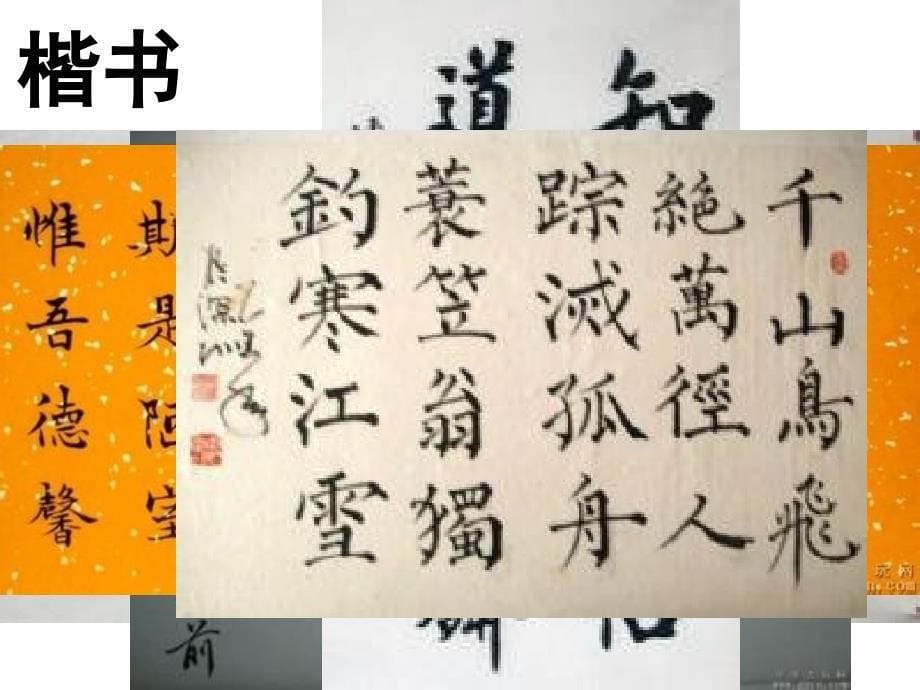 楷书
千山鳥飛
絶萬徑人
踪滅孤舟
蓑笠翁獨
釣寒江雪
斯是陋室
惟吾德馨
道
知
前